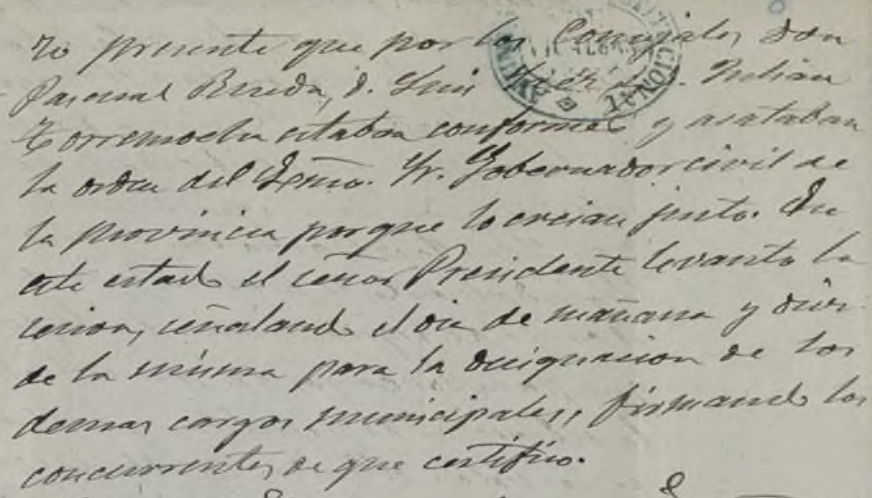 to presente que por los Concejales Don
Pascual Rueda, D. Luis Julian
Torremocha estaban conformes y acataban
la orden del Yltmo. Sr. Gobernador civil de
la provincia porque lo creian justo. En
este estado el señor Presidente levanto la
sesion, señalando el dia de mañana y diez
de la misma para la designacion de los
demas cargos municipales, firmando los
concurrentes de que certifico.